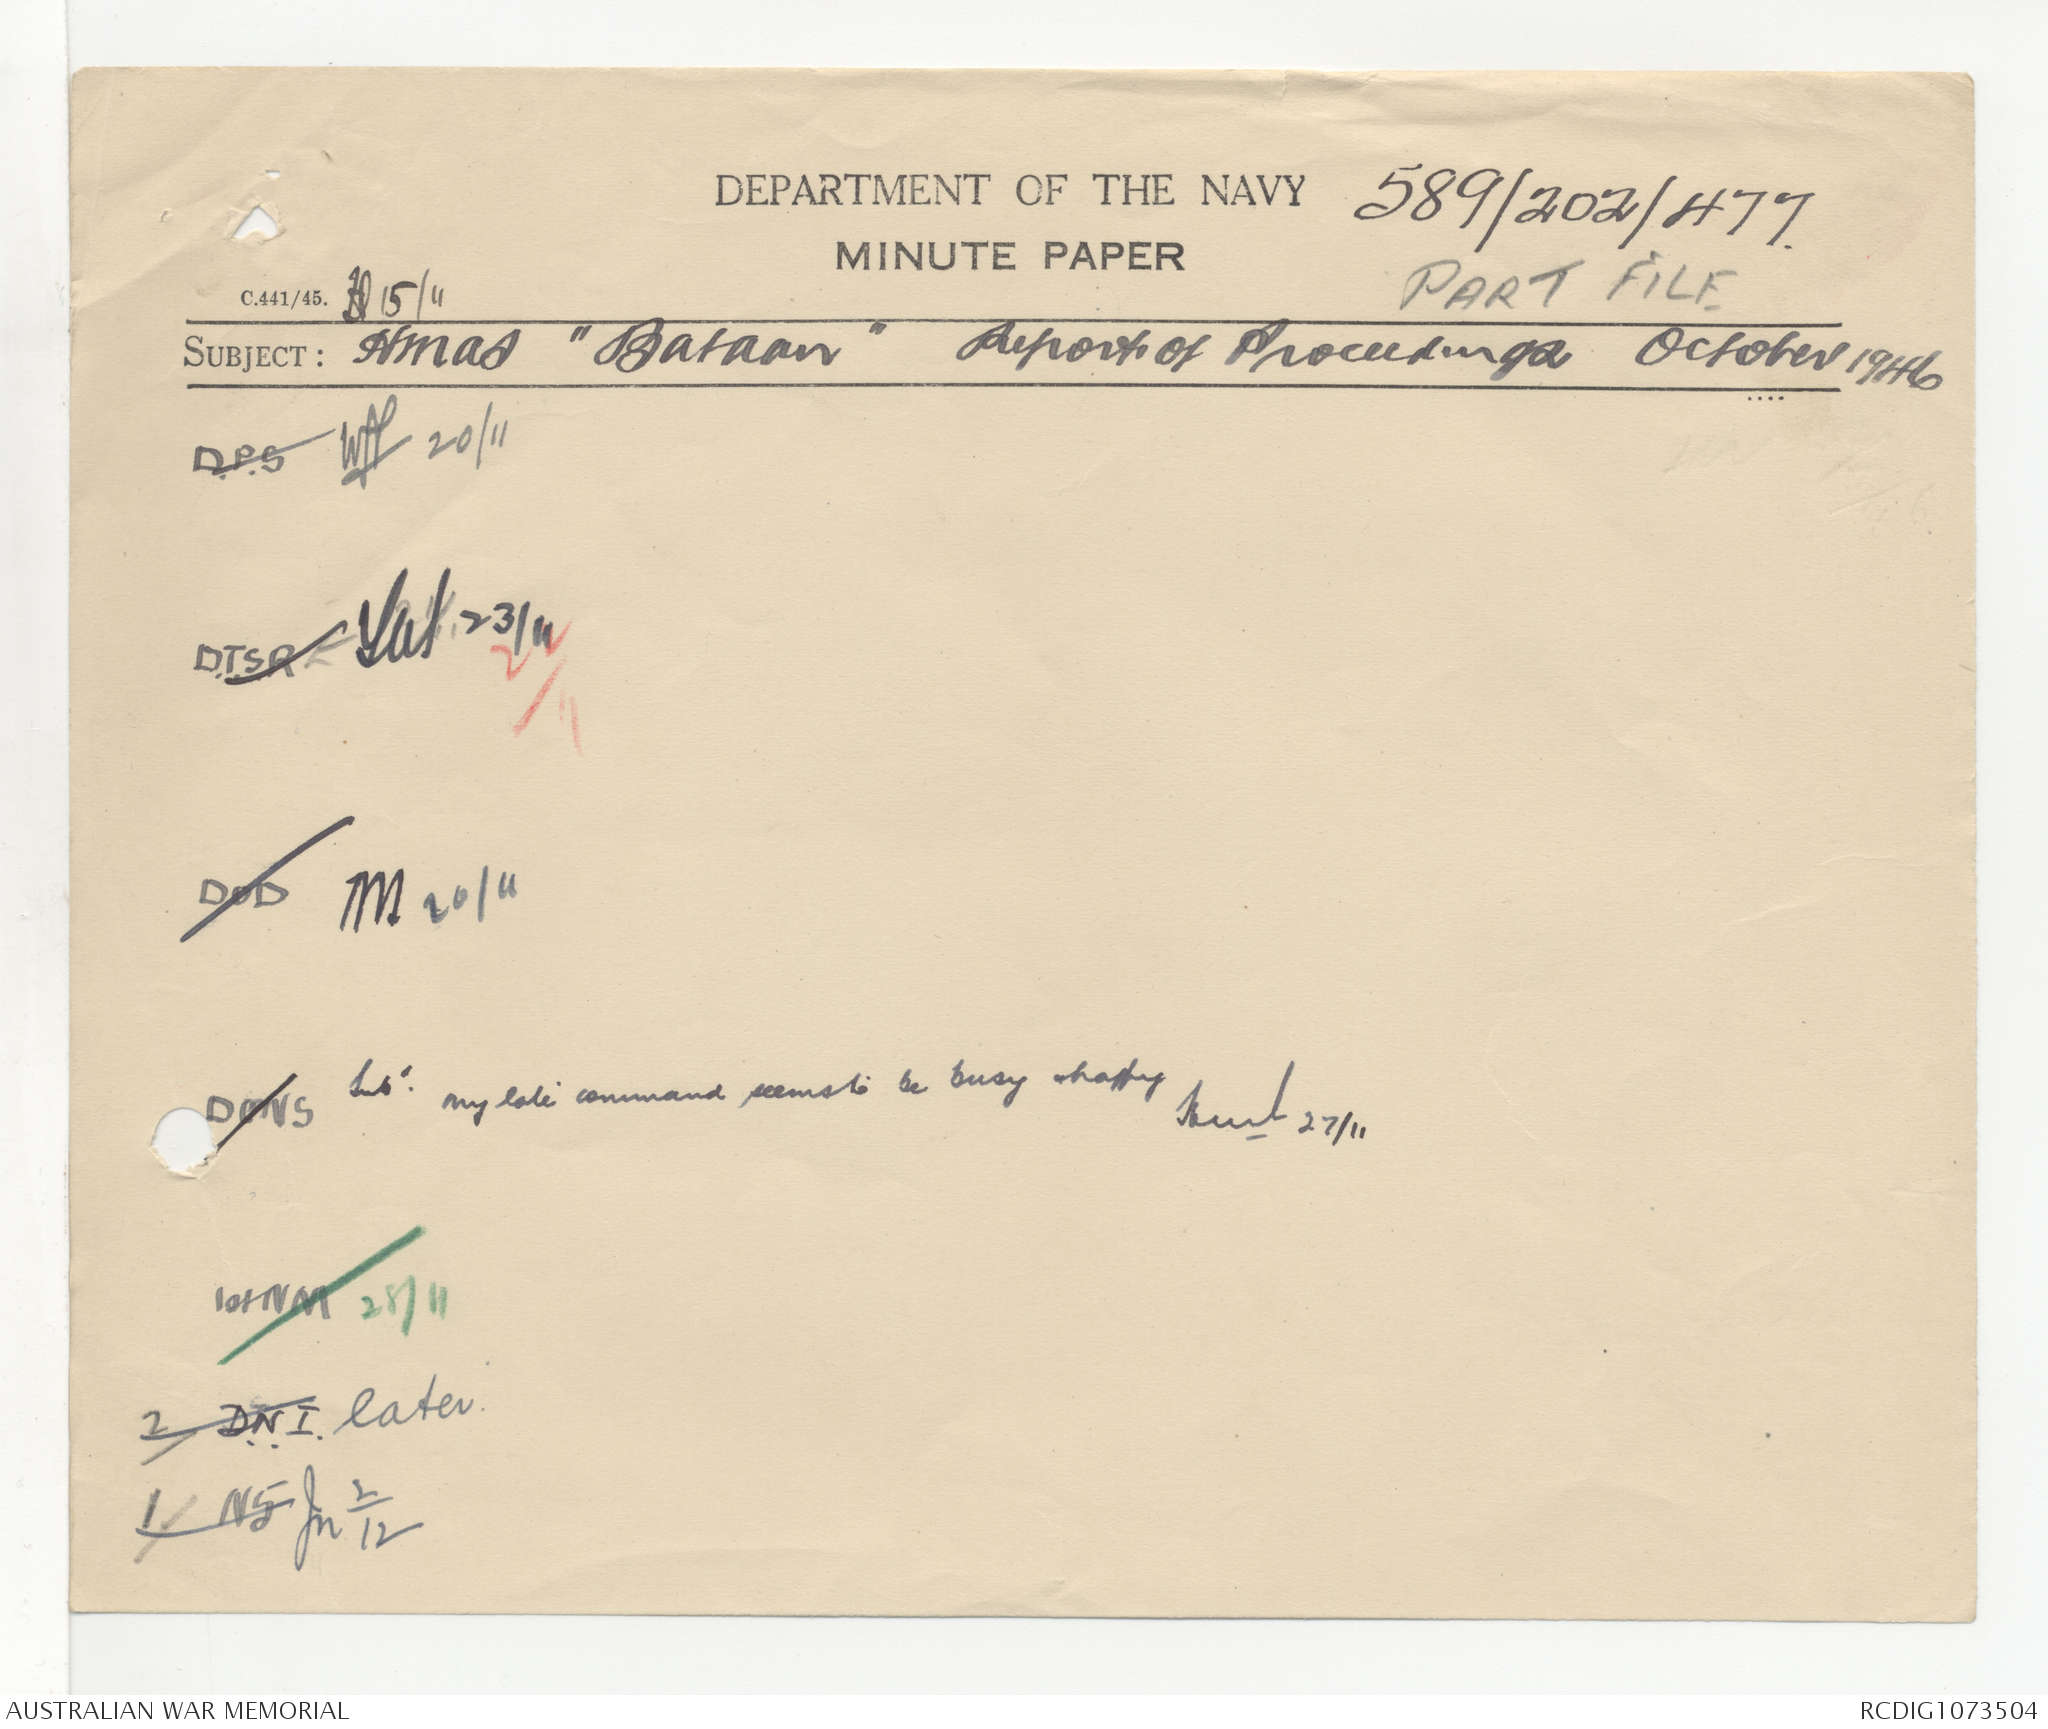 DEPARTMENT OF THE NAVY 589/202/477.
MINUTE PAPER
PART FILE
C.441/45. 15/11
SUBJECT: HMAS "Bataan" Report of Proceedings October 1946
D.P.S 20/11
D.T.S.R 23/11
2/11
DOD M 20/11
DMNS my late command seems to be busy & happy
27/11
1st NM 28/11
2 D.N.I. later.
1/ NS 2/12
AUSTRALIAN WAR MEMORIAL
RCDIG1073504